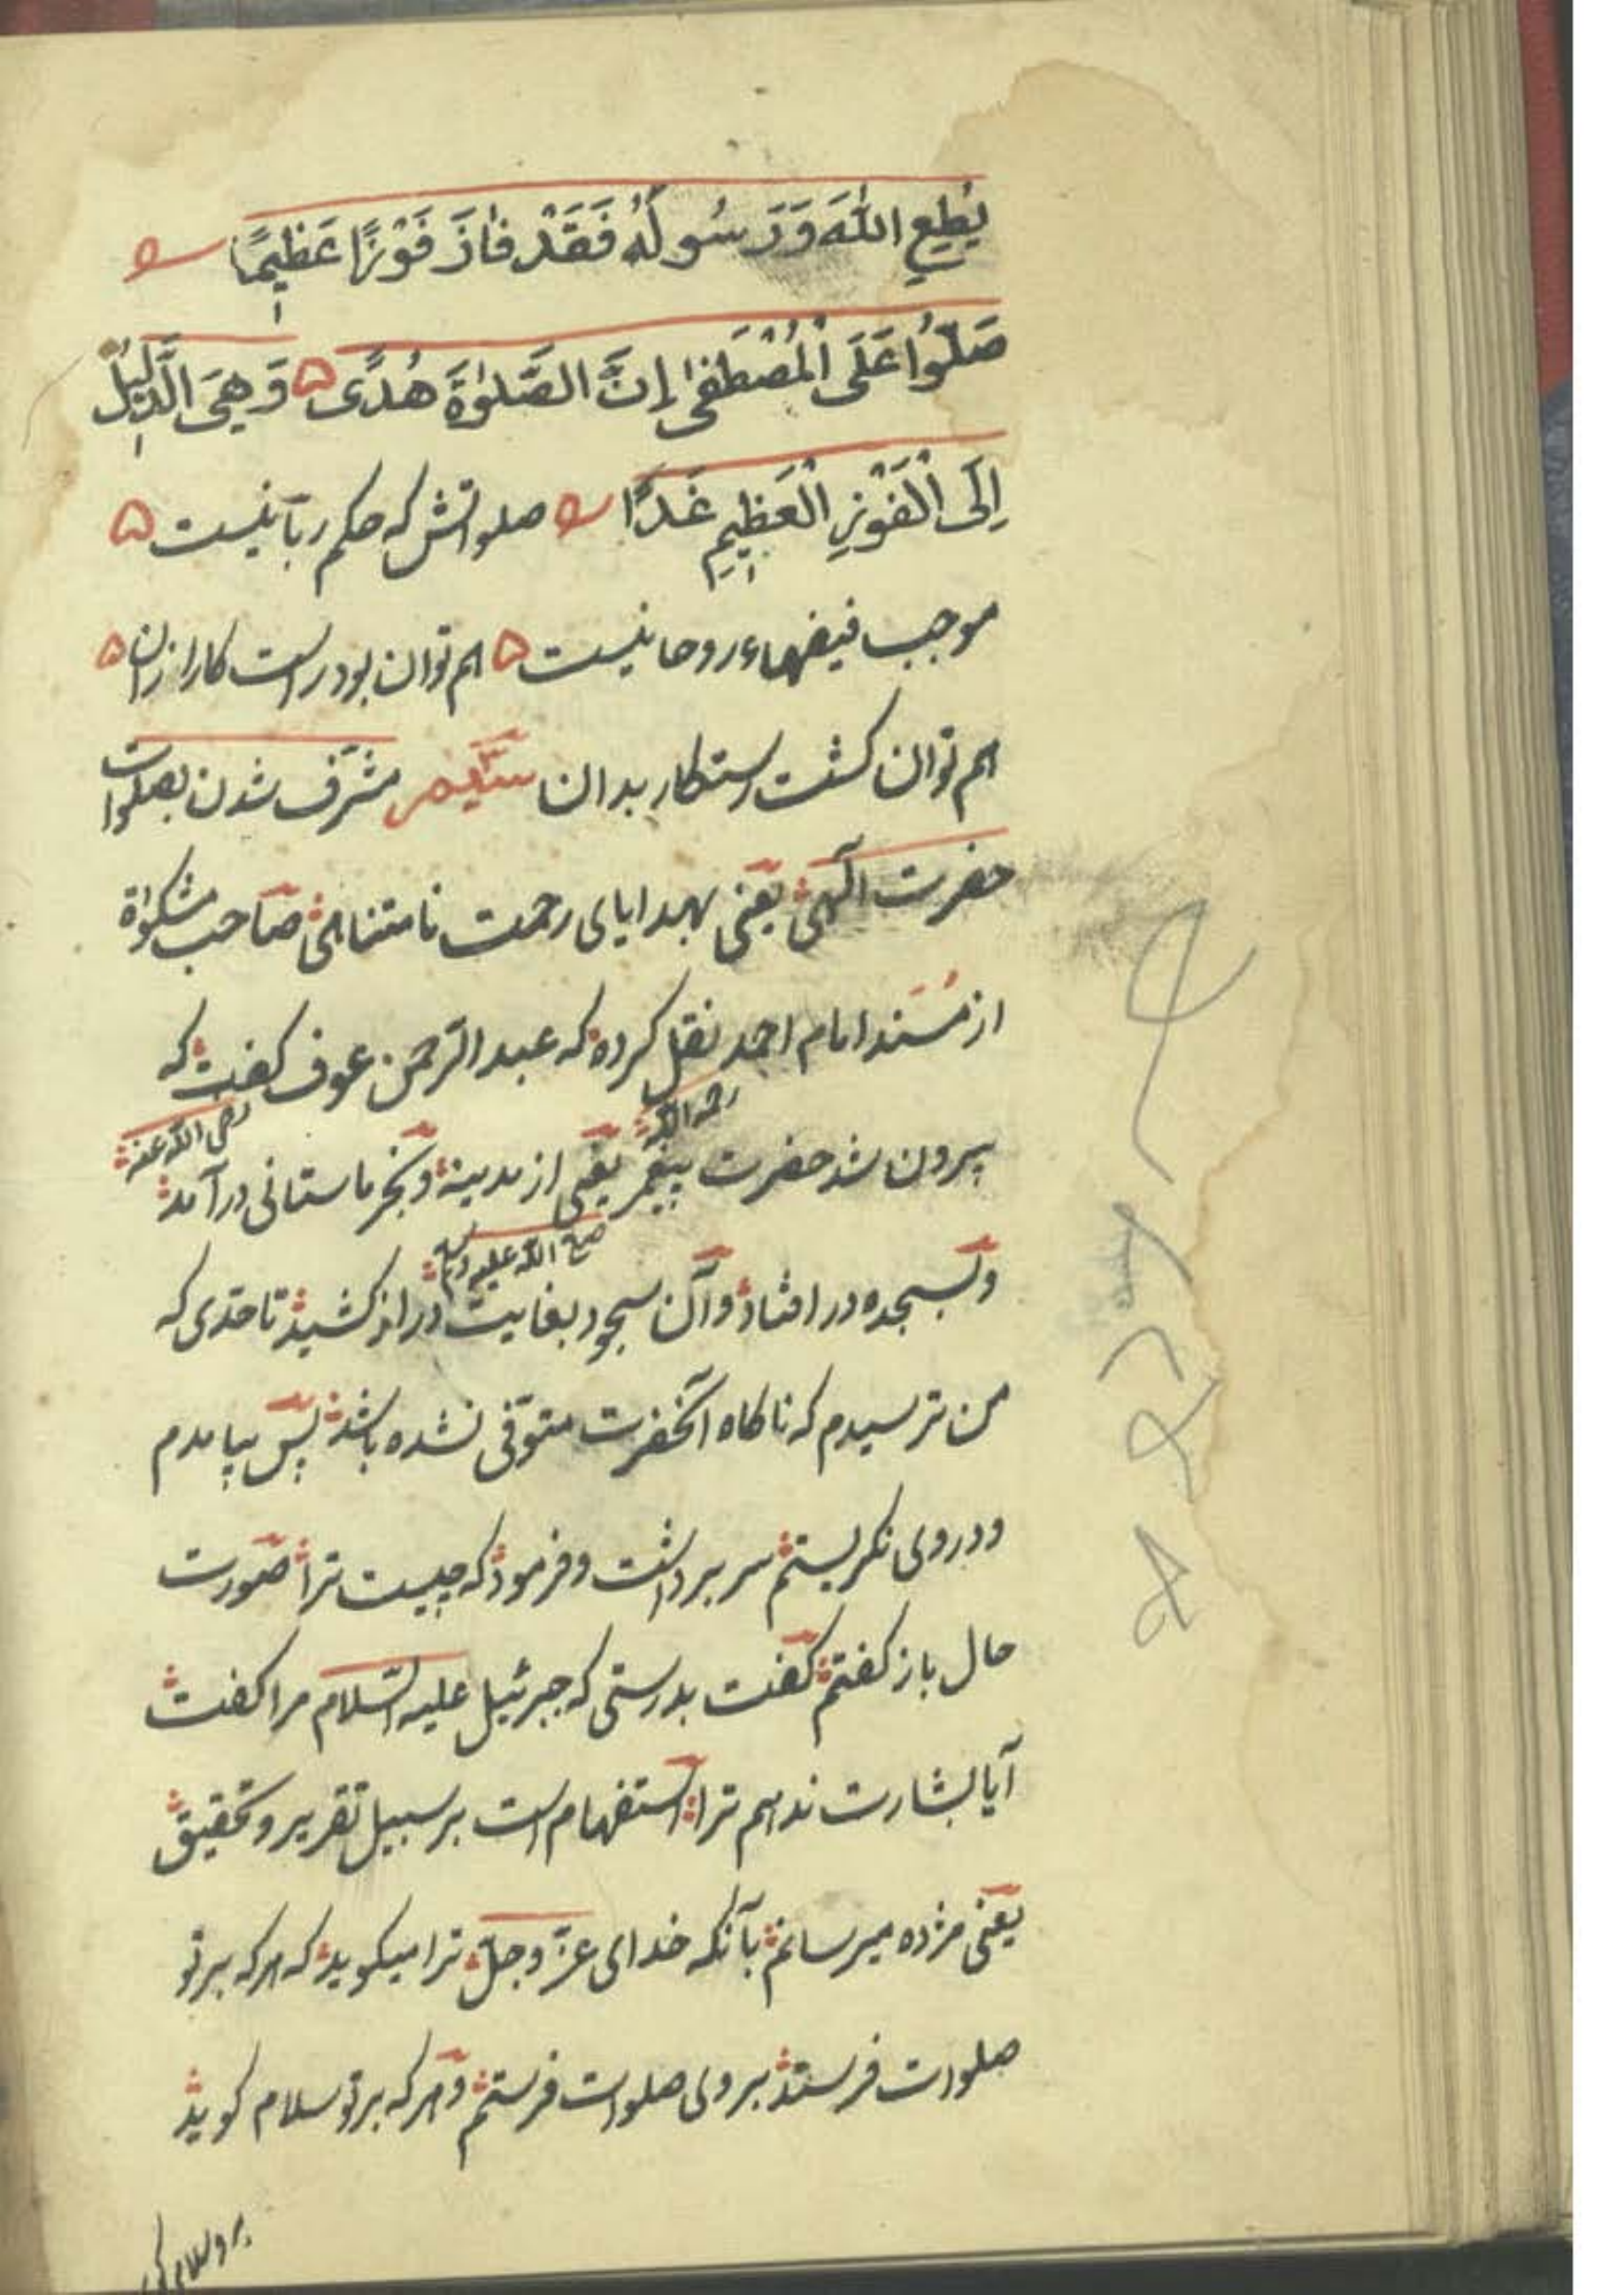 يُطِعِ اللّٰهَ وَرَسُولَهُ فَقَدْ فَازَ فَوْزًا عَظِيمًا
صَلُّوا عَلَى الْمُصْطَفٰى إِنَّ الصَّلٰوةَ هُدًى ۵ وَهِيَ الدَّلِيلُ
إِلَى الْفَوْزِ الْعَظِيمِ غَدًا صلواتش که حکم ربانیست ۵
موجب فیضهاء روحانیست ۵ هم توان بود رستکار ازان ۵
هم توان کشت رستکار بدان سیّم مشرّف شدن بصلوات
حضرت الٓهی یعنی بهدایای رحمت نامتناهی صاحب مشکوٰة
از مُسند امام احمد نقل کرده که عبد الرّحمن عوف کفت که
رحمه اللّه
رضی اللّه عنه
بیرون شد حضرت پیغمبر یعنی از مدینه و بخرماستانی درآمد
صلی اللّه علیه وسلم
و بسجده در افتاد و آن سجود بغایت دراز کشید تا حدّی که
من ترسیدم که ناکاه آنحضرت متوفّی نشده باشد پس بیامدم
و در وی نکریستم سر برداشت و فرمود که چیست ترا صورت
حال باز کفتم کفت بدرستی که جبرئیل علیه السّلام مرا کفت
آیا بشارت ندهم ترا استفهام است بر سبیل تقریر و تحقیق
یعنی مژده میرسانم بآنکه خدای عزّ و جلّ ترا میکوید که هر که بر تو
صلوات فرستد بر وی صلوات فرستم و هر که بر تو سلام کوید